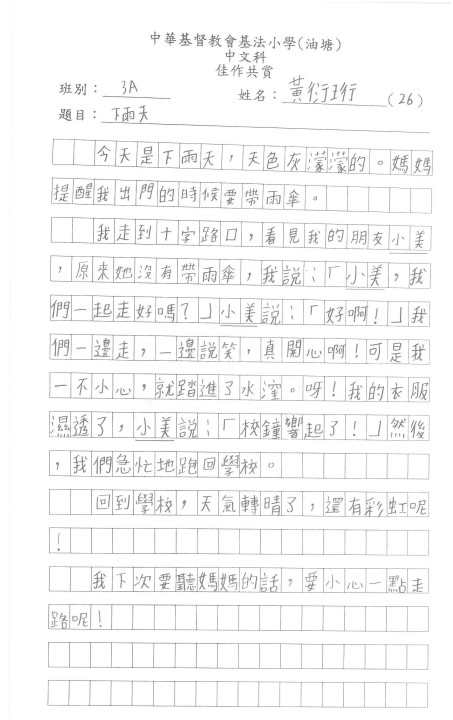 中華基督教會基法小學(油塘)
中文科
佳作共賞
班別： 3A 姓名： 黃衍珩 (26)
題目： 下雨天
今天是下雨天，天色灰濛濛的。媽媽
提醒我出門的時候要帶雨傘。
我走到十字路口，看見我的朋友小美
，原來她沒有帶雨傘，我說：「小美，我
們一起走好嗎？」小美說：「好啊！」我
們一邊走，一邊說笑，真開心啊！可是我
一不小心，就踏進了水窪。呀！我的衣服
濕透了，小美說：「校鐘響起了！」然後
，我們急忙地跑回學校。
回到學校，天氣轉晴了，還有彩虹呢
！
我下次要聽媽媽的話，要小心一點走
路呢！